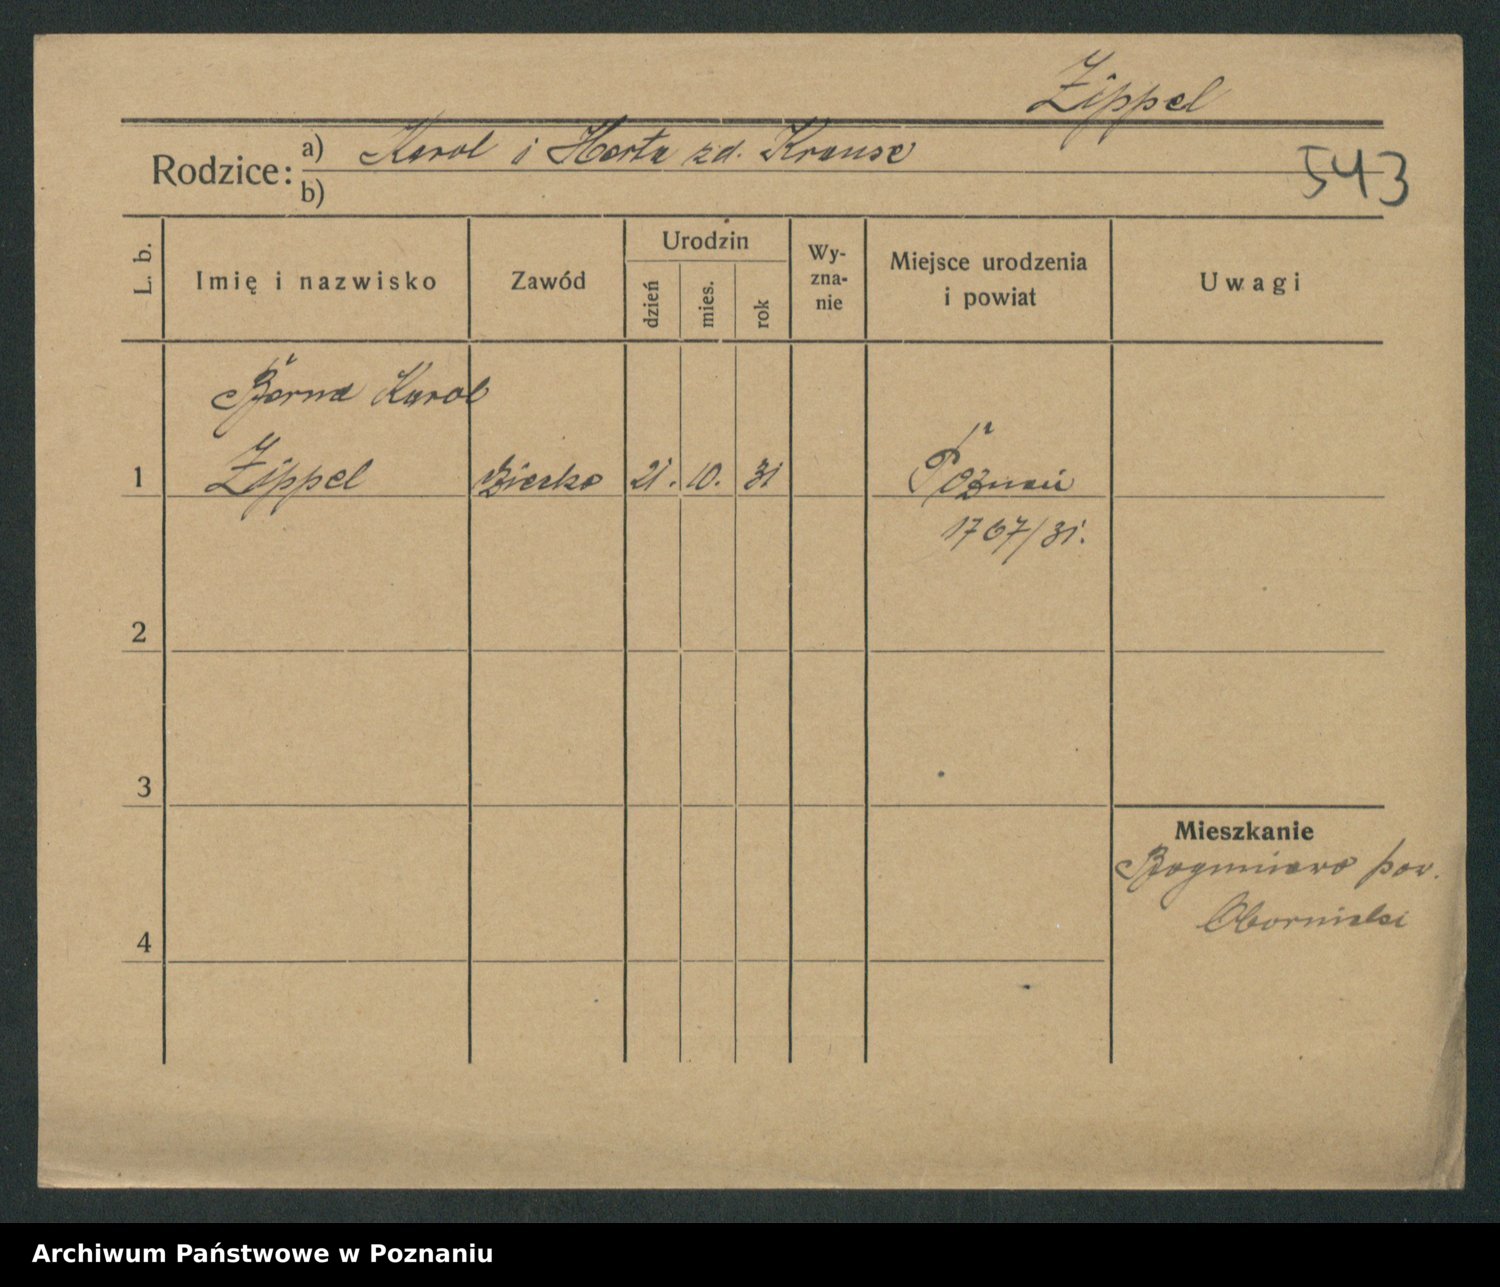 Zippel
Rodzice: a) Karol i Herta zd. Krause
543
b)
L. b.
Imię i nazwisko
Zawód
Urodzin
dzień
mies.
rok
Wy-
zna-
nie
Miejsce urodzenia
i powiat
Uwagi
Bernd Karol
1 Zippel dziecko 21. 10. 31 Poznań
1767/31.
2
3
Mieszkanie
Bogumiewo pow.
Obornicki
4
Archiwum Państwowe w Poznaniu